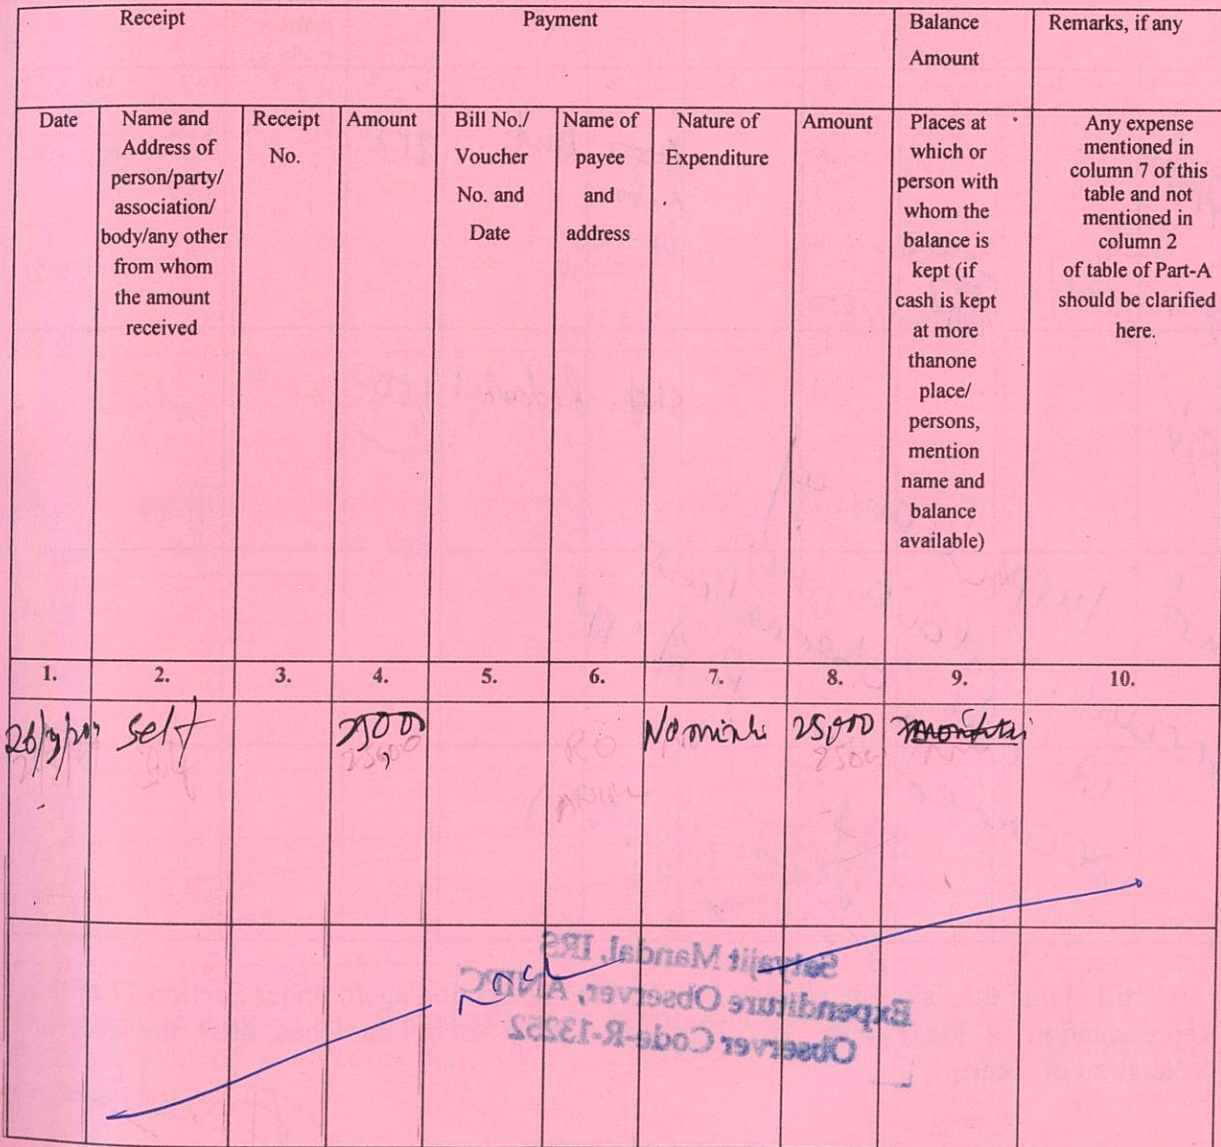 Receipt Payment Balance Amount Remarks, if any
Date
Name and
Address of
person/party/
association/
body/any other
from whom
the amount
received
Receipt
No.
Amount
Bill No./
Voucher
No. and
Date
Name of
payee
and
address
Nature of
Expenditure
Amount
Places at
which or
person with
whom the
balance is
kept (if
cash is kept
at more
thanone
place/
persons,
mention
name and
balance
available)
Any expense
mentioned in
column 7 of this
table and not
mentioned in
column 2
of table of Part-A
should be clarified
here.
1. 2. 3. 4. 5. 6. 7. 8. 9. 10.
self 25,000
Satyajit Mandal, IRS
Expenditure Observer, ANIPC
Observer Code-R-13252